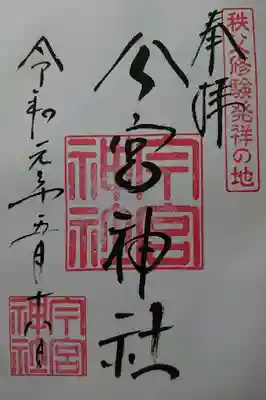 秩父修験発祥の地
奉拝
今宮神社
今宮神社
令和元年五月
今宮神社